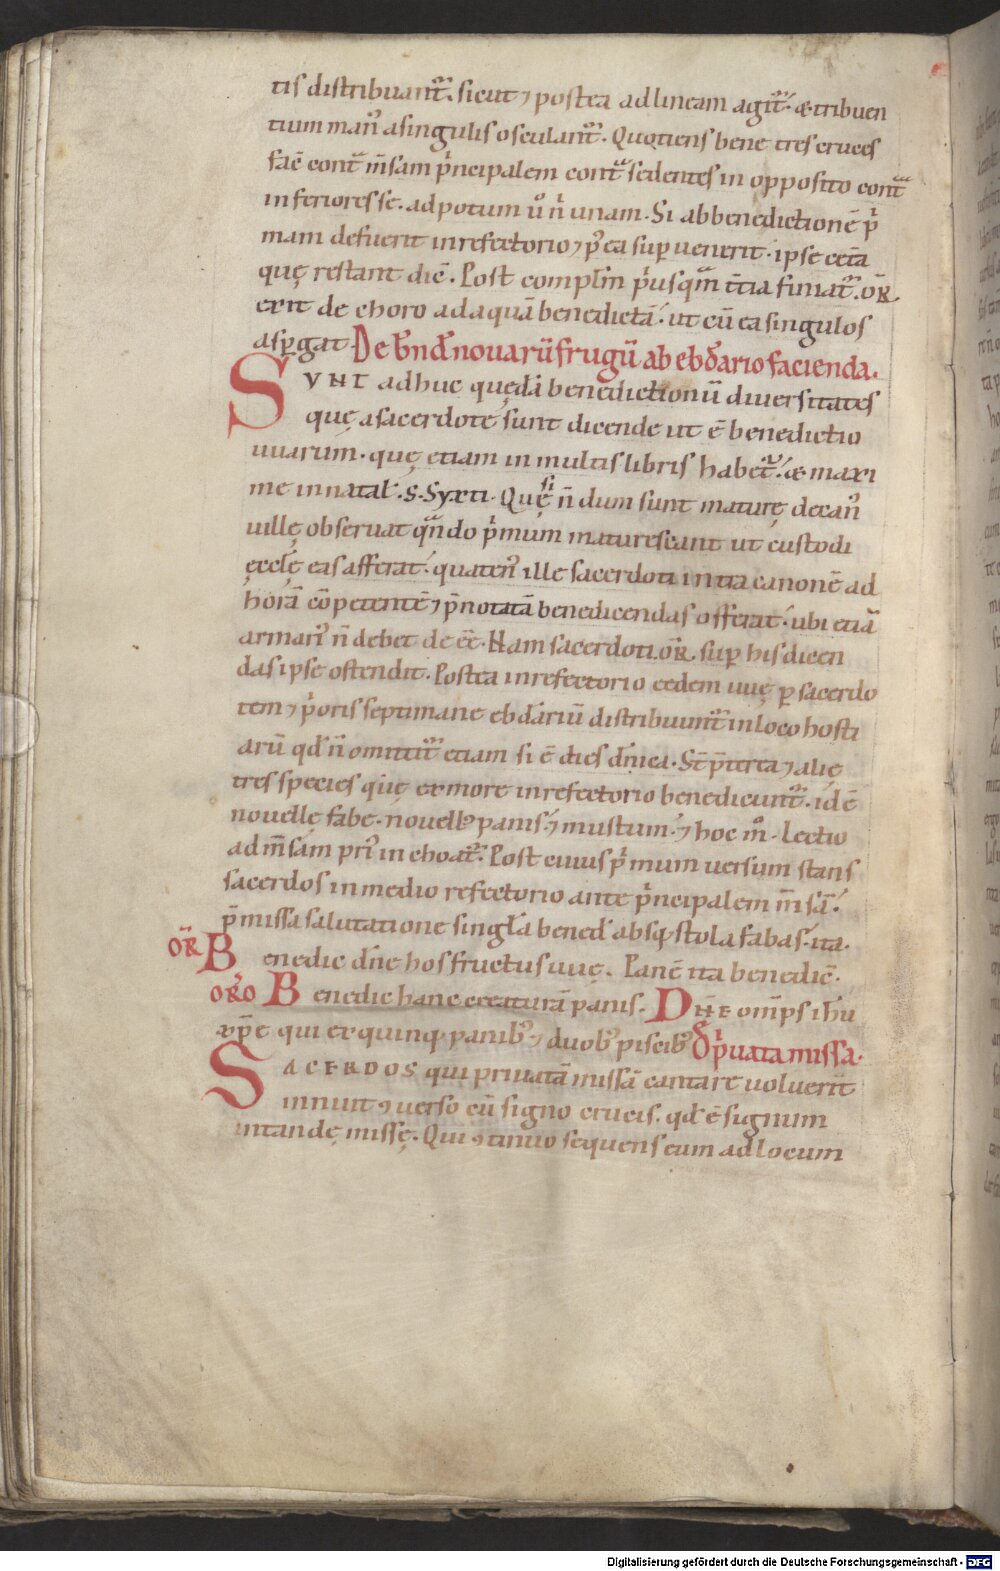 tis distribuant᷑. sicut ⁊ postea ad lineam agit᷑. & tribuen
tium man᷒ a singulis osculant᷑. Quotiens bene tres cruces
faċ cont͛ m̄sam p̍ncipalem cont͛ sedentes in opposito cont͛
inferiores se. ad potum ů n̍ unam. Si ab benedictionē p̍
mam defuerit in refectorio ⁊ p᷒ ea sup̱uenerit. ipse cet̄a
quę restant diċ. Post complīn p̍usqm̄ t̄tia finiat᷑. or̄
exit de choro ad aquā benedictā. ut cū ea singulos
asp̱gat. De bn̄d̄ nouarū frugū ab ebd̄ario facienda.
SVNT adhuc quędā benedictionū diuersitates
quę a sacerdote sunt dicende ut ē benedictio
uuarum. quę etiam in multis libris habet᷑. & maxi
me in natał. S. Syxti. Quę si n̄ dum sunt maturę decan᷒
uillę obseruat qn̄do p̍mum maturescant ut custodi
ęcclę̄ eas afferat. quaten᷒ ille sacerdoti intra canonē ad
horā cōpetentē ⁊ p̄notatā benedicendas offerat. ubi etiā
armari᷒ n̄ debet deēē. Nam sacerdoti or̄. sup̱ his dicen
das ipse ostendit. Postea in refectorio eędem uuę p̱ sacerdo
tem ⁊ p̍oris septimane ebd̄ariū distribuunt᷑ in loco hosti
arū qd̄ n̄ omittit᷑ etiam si ē dies dn̄ica. St̄ p̄terea ⁊ alię
tres species quę ex more in refectorio benedicunt᷑. id ē
nouelle fabe. nouell᷒ panis. ⁊ mustum. ⁊ hoc m̊. Lectio
ad m̄sam pri᷒ inchoat᷑. Post cuius p̍mum uersum stans
sacerdos in medio refectorio ante p̍ncipalem m̄sā.
p̄missa salutatione singlā bened̄ absq; stola fabas. ita.
or̄ Benedic dn̄e hos fructus uuę. Panē ita benediċ.
oro Benedic hanc creaturā panis. DN̄E om̄ps ihu
xp̄e qui ex quinq; panib᷒ ⁊ duob᷒ piscib᷒ D̄ p̍uata missa.
SACERDOS qui priuatā missā cantare uoluerit
innuit ⁊uerso cū signo crucis. qd̄ ē signum
intandę missę. Qui ⁊tinuo sequens eum ad locum
Digitalisierung gefördert durch die Deutsche Forschungsgemeinschaft - DFG